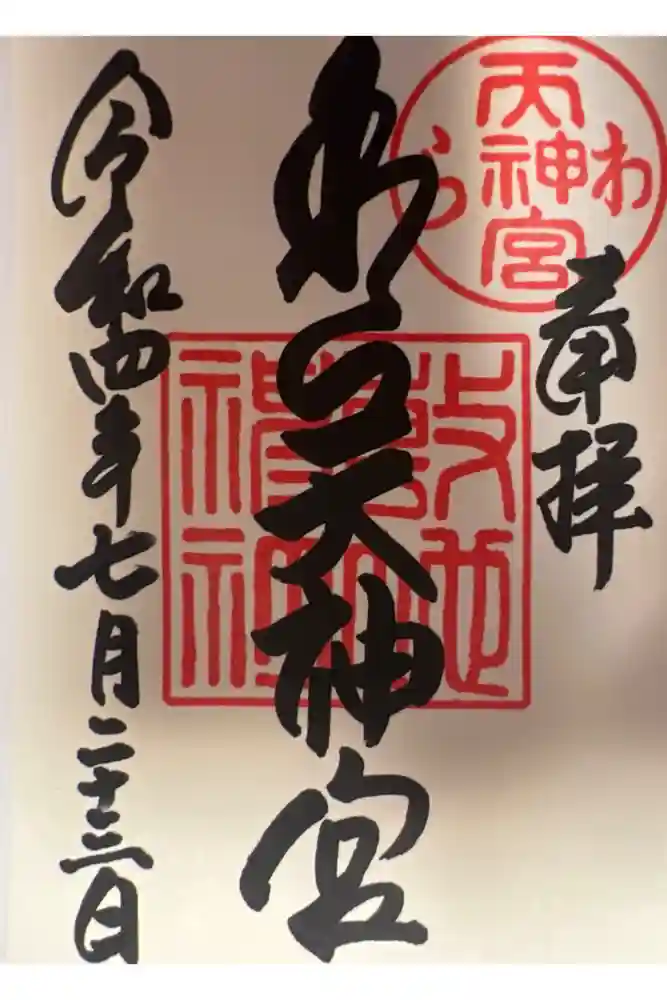 わら天神宮
奉拝
わら天神宮
敷地
神社
令和四年七月二十三日